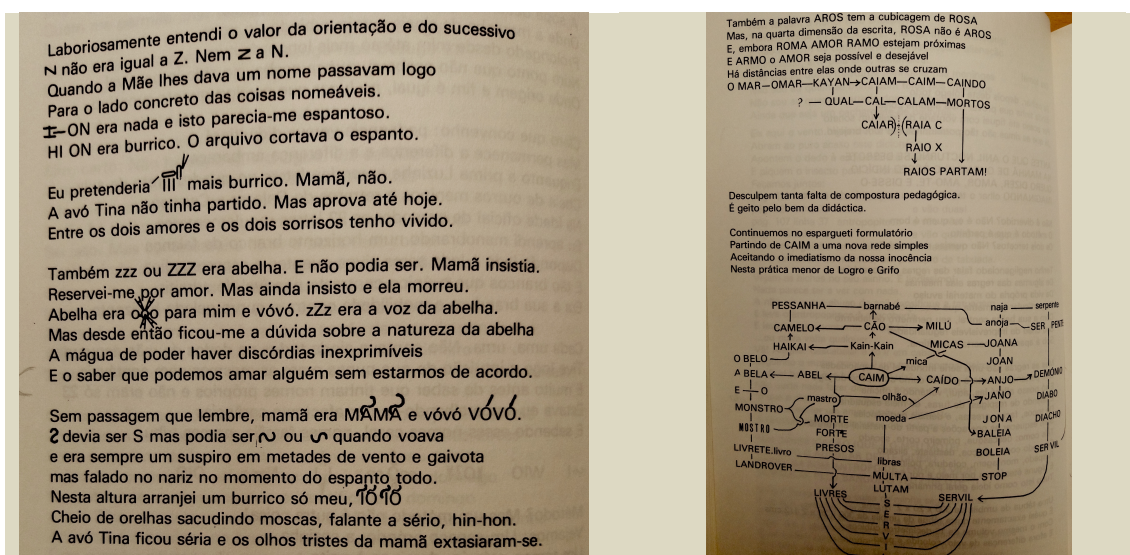 Laboriosamente entendi o valor da orientação e do sucessivo
N não era igual a Z. Nem Z a N.
Quando a Mãe lhes dava um nome passavam logo
Para o lado concreto das coisas nomeáveis.
ON era nada e isto parecia-me espantoso.
HI ON era burrico. O arquivo cortava o espanto.
Eu pretenderia mais burrico. Mamã, não.
A avó Tina não tinha partido. Mas aprova até hoje.
Entre os dois amores e os dois sorrisos tenho vivido.
Também zzz ou ZZZ era abelha. E não podia ser. Mamã insistia.
Reservei-me por amor. Mas ainda insisto e ela morreu.
Abelha era para mim e vóvó. zZz era a voz da abelha.
Mas desde então ficou-me a dúvida sobre a natureza da abelha
A mágua de poder haver discórdias inexprimíveis
E o saber que podemos amar alguém sem estarmos de acordo.
Sem passagem que lembre, mamã era MAMA e vóvó VÓVÓ.
S devia ser S mas podia ser ~ ou ~ quando voava
e era sempre um suspiro em metades de vento e gaivota
mas falado no nariz no momento do espanto todo.
Nesta altura arranjei um burrico só meu, TÓTÓ
Cheio de orelhas sacudindo moscas, falante a sério, hin-hon.
A avó Tina ficou séria e os olhos tristes da mamã extasiaram-se.
Também a palavra AROS tem a cubicagem de ROSA
Mas, na quarta dimensão da escrita, ROSA não é AROS
E, embora ROMA AMOR RAMO estejam próximas
E ARMO o AMOR seja possível e desejável
Há distâncias entre elas onde outras se cruzam
O MAR—OMAR—KAYAN→CAIAM—CAIM—CAINDO
? — QUAL—CAL—CALAM—MORTOS
CAIAR)-(RAIA C
RAIO X
RAIOS PARTAM!
Desculpem tanta falta de compostura pedagógica.
É geito pelo bem da didáctica.
Continuemos no espargueti formulatório
Partindo de CAIM a uma nova rede simples
Aceitando o imediatismo da nossa inocência
Nesta prática menor de Logro e Grifo
PESSANHA barnabé naja serpente
CAMELO CÃO MILÚ anoja SER PENTE
HAIKAI Kain-Kain MICAS JOANA
O BELO mica JOAN
A BELA ABEL CAIM CAÍDO ANJO DEMÓNIO
E — O mastro olhão JANO DIABO
MONSTRO MORTE moeda JONA DIACHO
MOSTRO FORTE BALEIA
LIVRETE.livro PRESOS BOLEIA SERVIL
LANDROVER libras
MULTA STOP
LUTAM
LIVRES S SERVIL
E
R
V
I